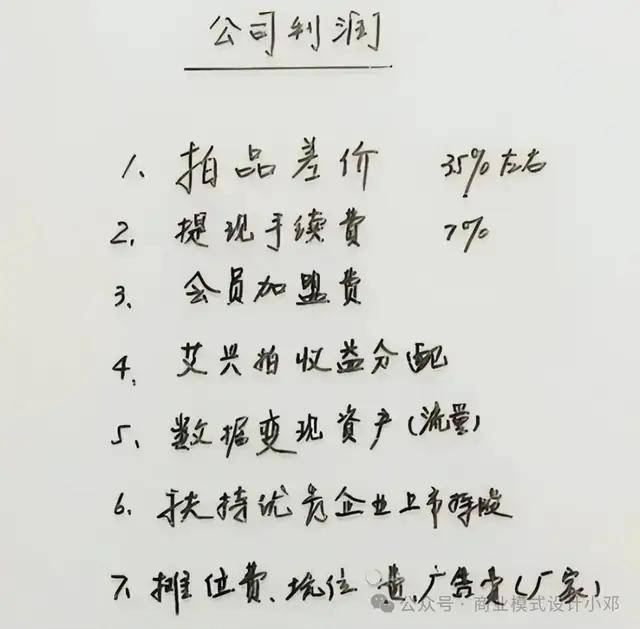 公司利润
1、拍品差价 35%左右
2、提现手续费 7%
3、会员加盟费
4、艾兴拍收益分配
5、数据变现资产(流量)
6、扶持优秀企业上市持股
7、摊位费、坑位费、广告费(厂家)
公众号·商业模式设计小邓